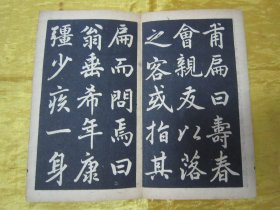 甫扁曰壽春
會親友以落
之客或指其
扁而問焉曰
翁垂希年康
彊少疾一身